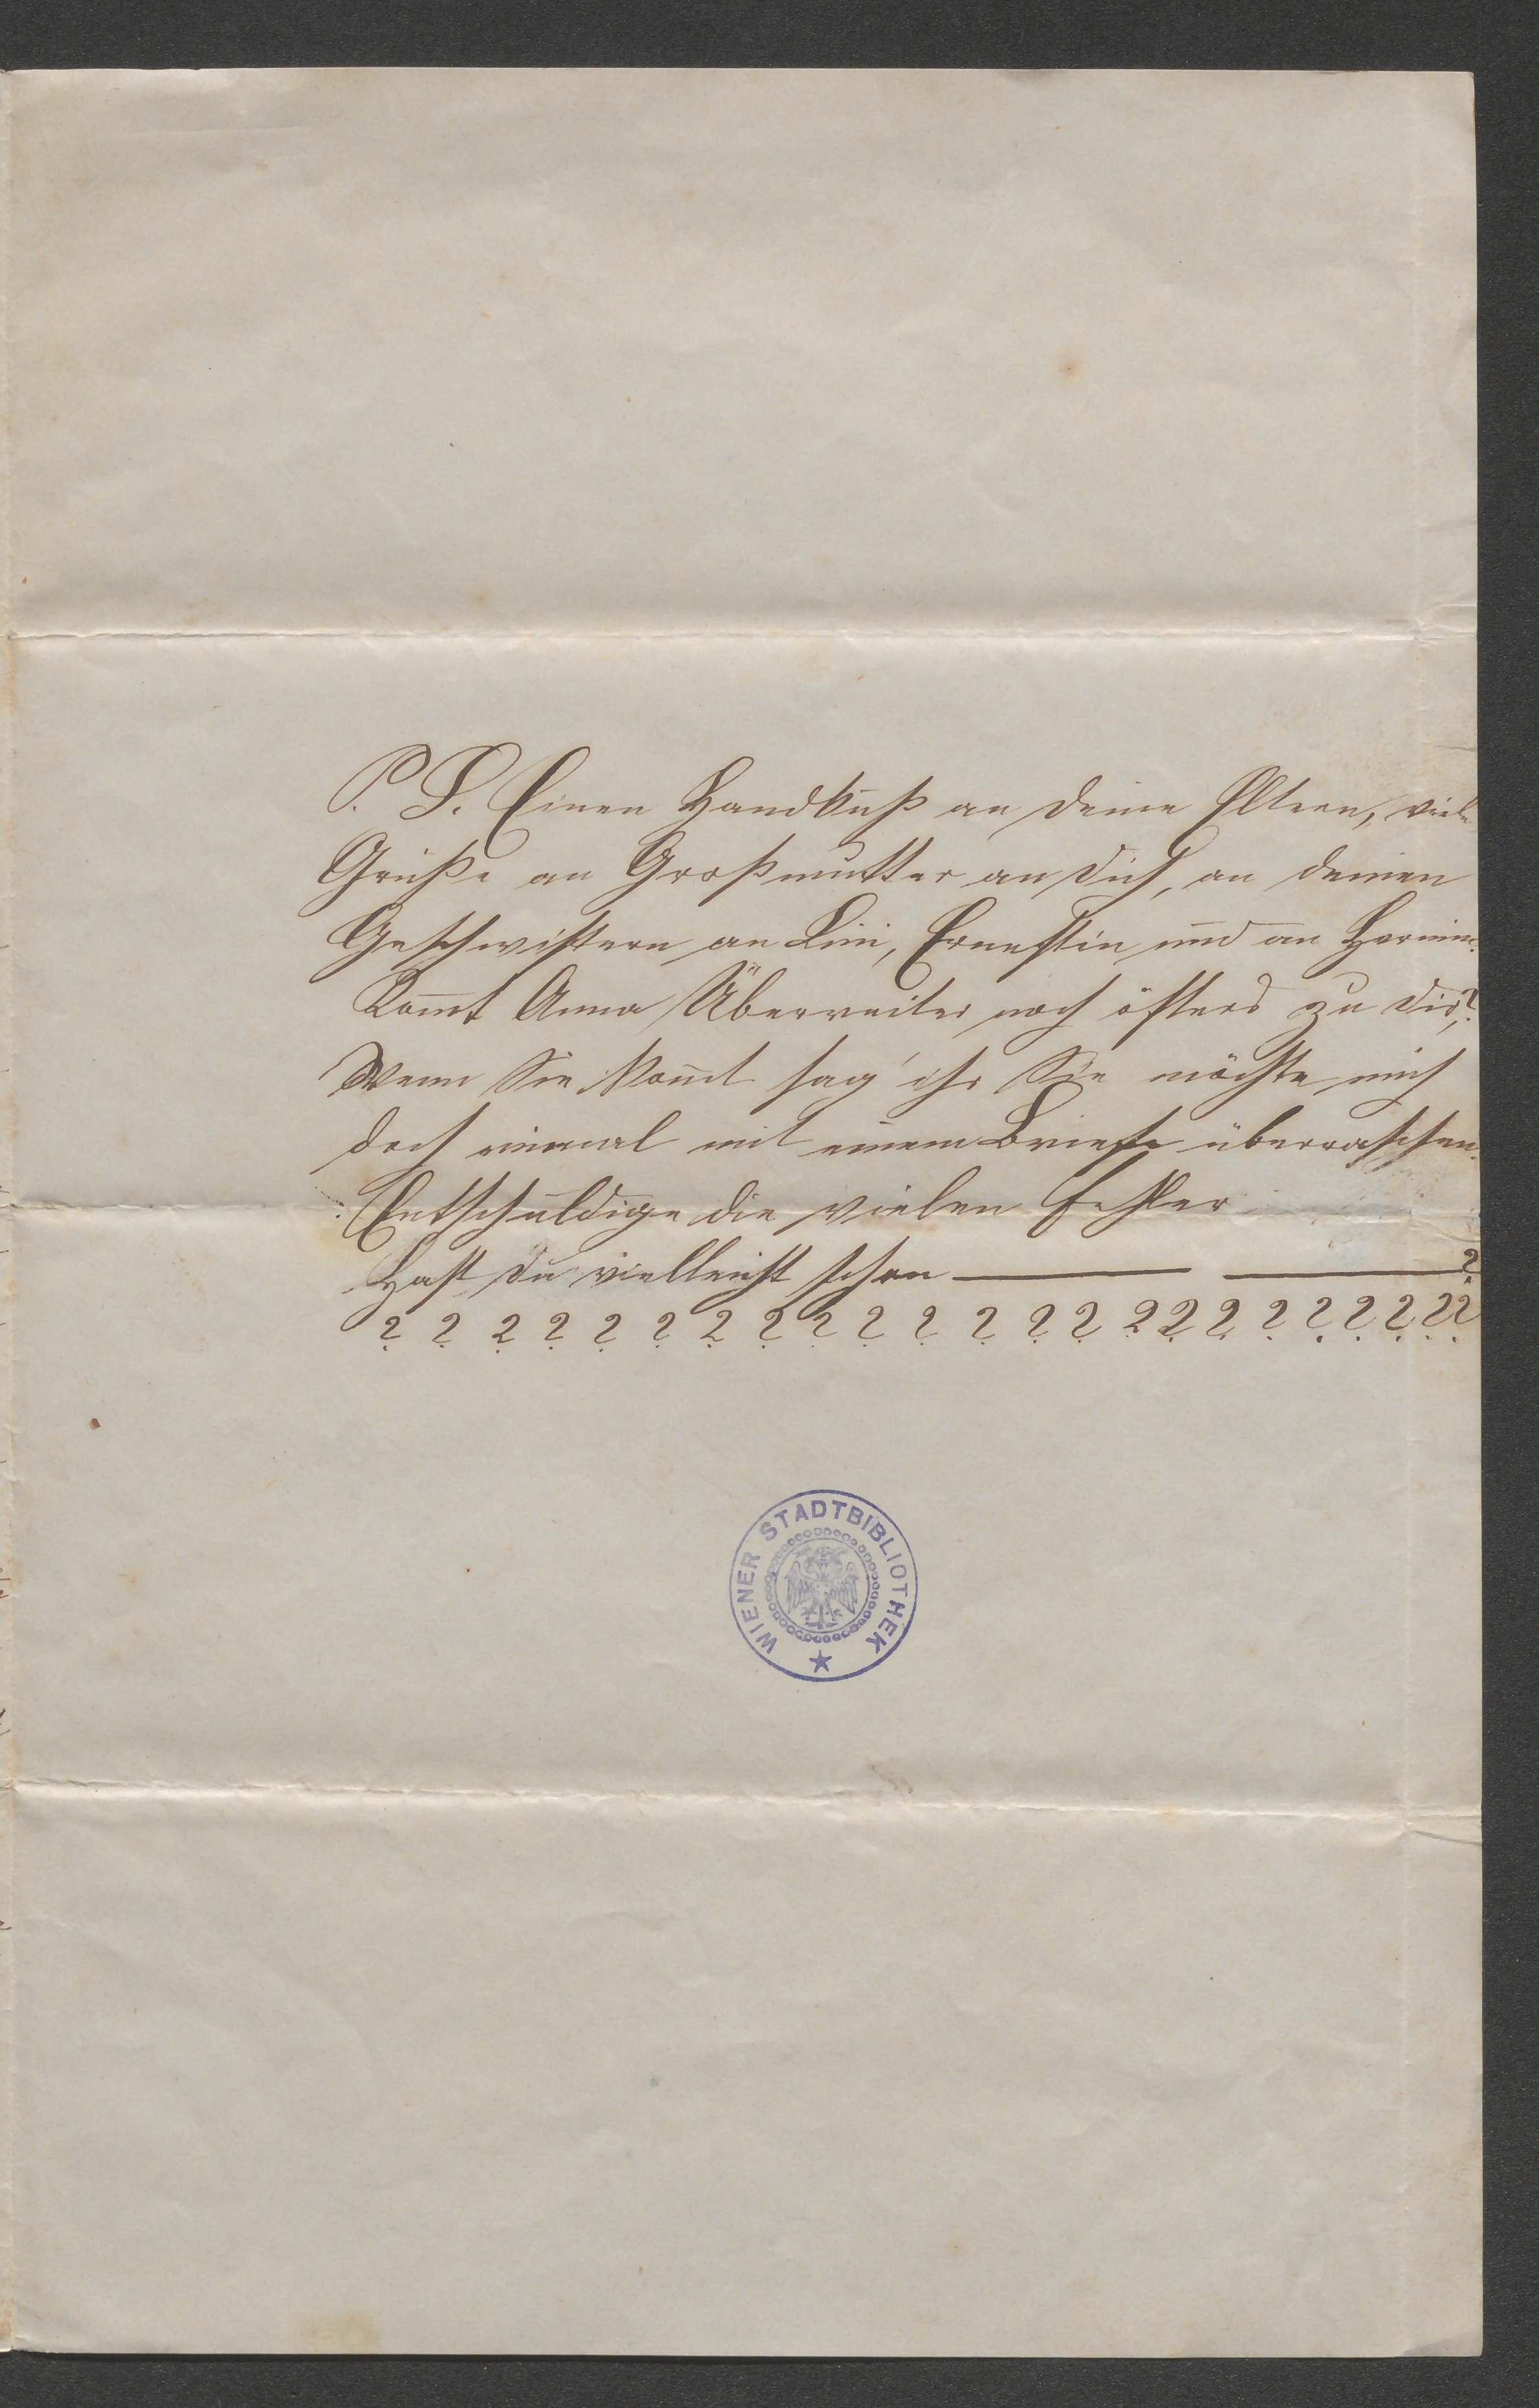 P. S. Einen Handkuß an deine Eltern, viele
Grüße an Großmutter an dich, an deinen
Geschwistern an Lini, Ernestin und an Hermin.
Kom̄t Anna Überreiter noch öfters zu dir,?
Wenn Sie kom̄t sag' ihr Sie möchte mich
doch einmal mit einem Briefe überraschen.
Entschuldige die vielen Fehler
Hast du vielleicht schon — — ?
? ? ? ? ? ? ? ? ? ? ? ? ? ? ? ? ? ? ? ? ? ? ?
WIENER STADTBIBLIOTHEK